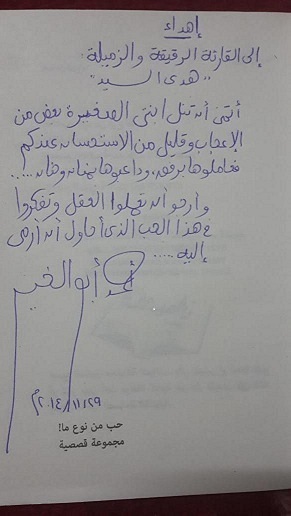 إهداء
إلى القارئة الرقيقة والزميلة
"هدى السيد"
أتمنى أن تنال ابنتى الصغيرة بعض من
الإعجاب وقليل من الاستحسان عندكم
فعاملوها برفق، وداعبوها بحنان
وأرجو أن تعملوا العقل وتفكروا
في هذا الحب الذى أحاول أن أرمى
إليه .....
أبو الخير
٢٠١٤/١١/٢٩م
حب من نوع ما!
مجموعة قصصية